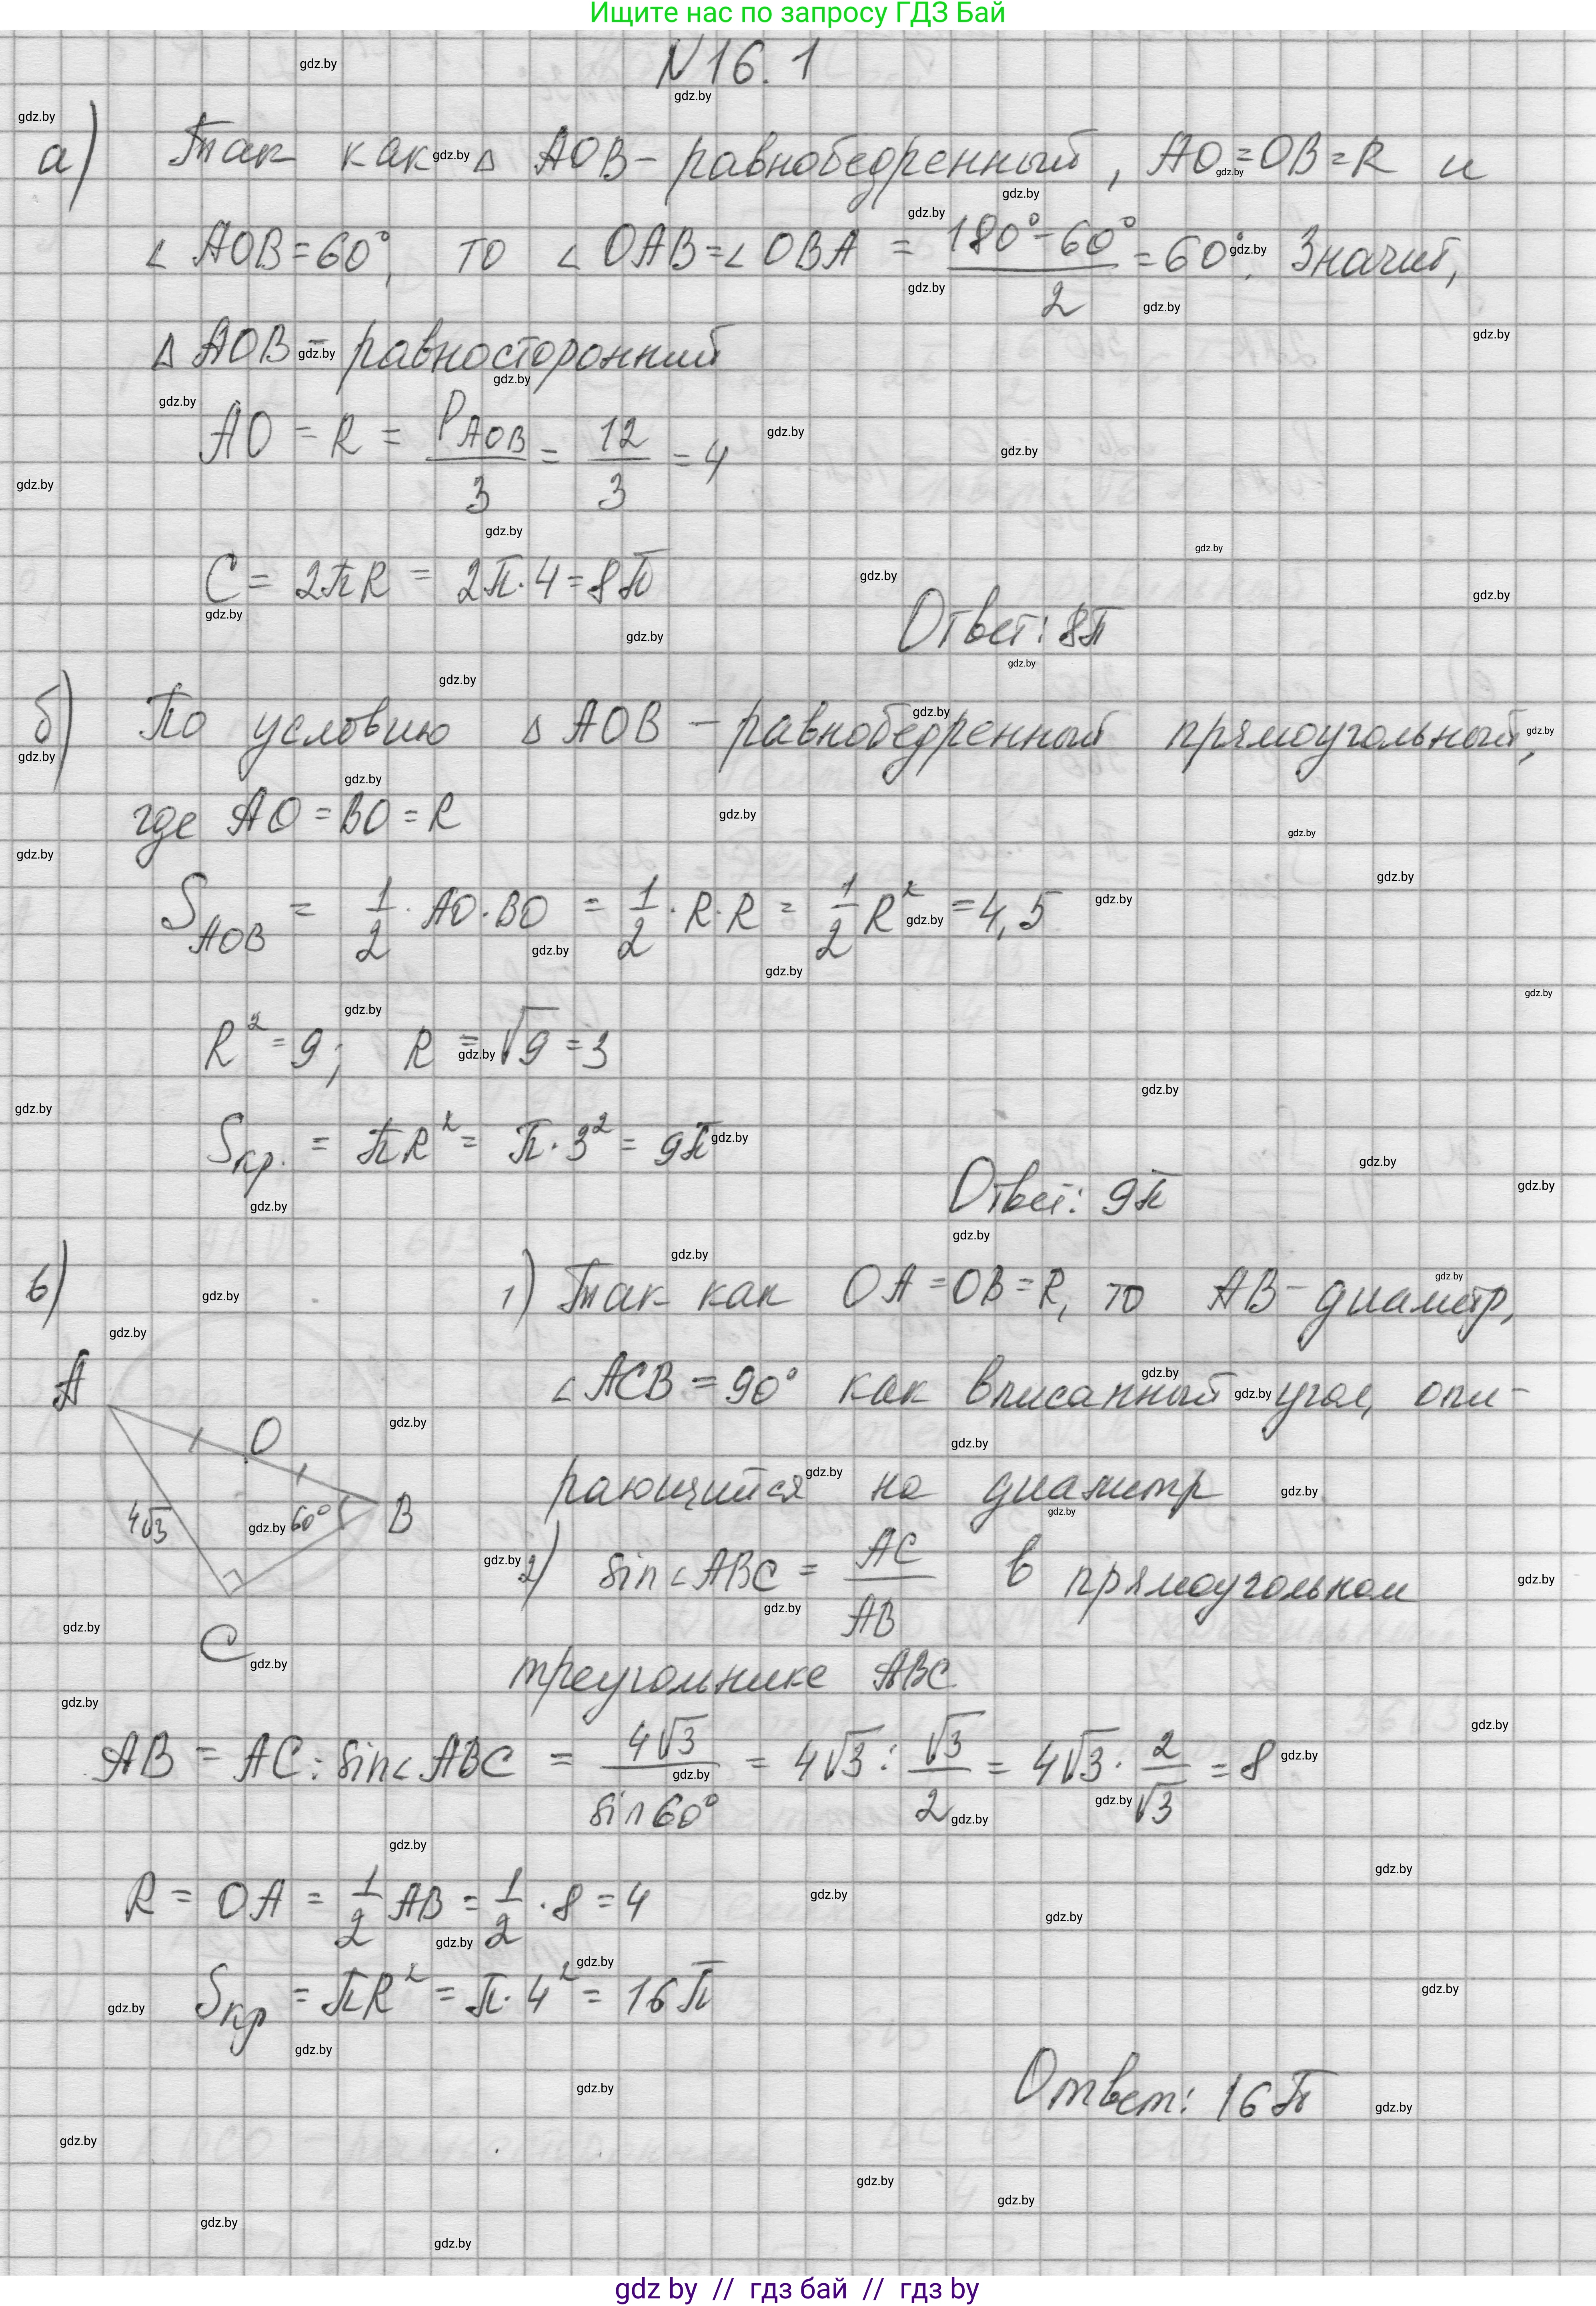 Ищите нас по запросу ГДЗ Бай
N 16. 1
а) Так как △ AOB - равнобедренный, AO = OB = R и
∠ AOB = 60°, то ∠ OAB = ∠ OBA = (180° - 60°)/2 = 60°. Значит,
△ AOB - равносторонний
AO = R = P_AOB/3 = 12/3 = 4
C = 2πR = 2π·4 = 8π
Ответ: 8π
б) По условию △ AOB - равнобедренный прямоугольный,
где AO = BO = R
S_AOB = 1/2 · AO · BO = 1/2 · R · R = 1/2 R² = 4,5
R² = 9; R = √9 = 3
Sкр. = πR² = π · 3² = 9π
Ответ: 9π
в) 1) Так как OA = OB = R, то AB - диаметр,
∠ ACB = 90° как вписанный угол, опи-
рающийся на диаметр
A
O
4√3
60°
B
C
2) sin∠ABC = AC/AB в прямоугольном
треугольнике ABC
AB = AC : sin∠ABC = 4√3/sin 60° = 4√3 : √3/2 = 4√3 · 2/√3 = 8
R = OA = 1/2 AB = 1/2 · 8 = 4
Sкр = πR² = π · 4² = 16π
Ответ: 16π
gdz.by
gdz by // гдз бай // гдз by